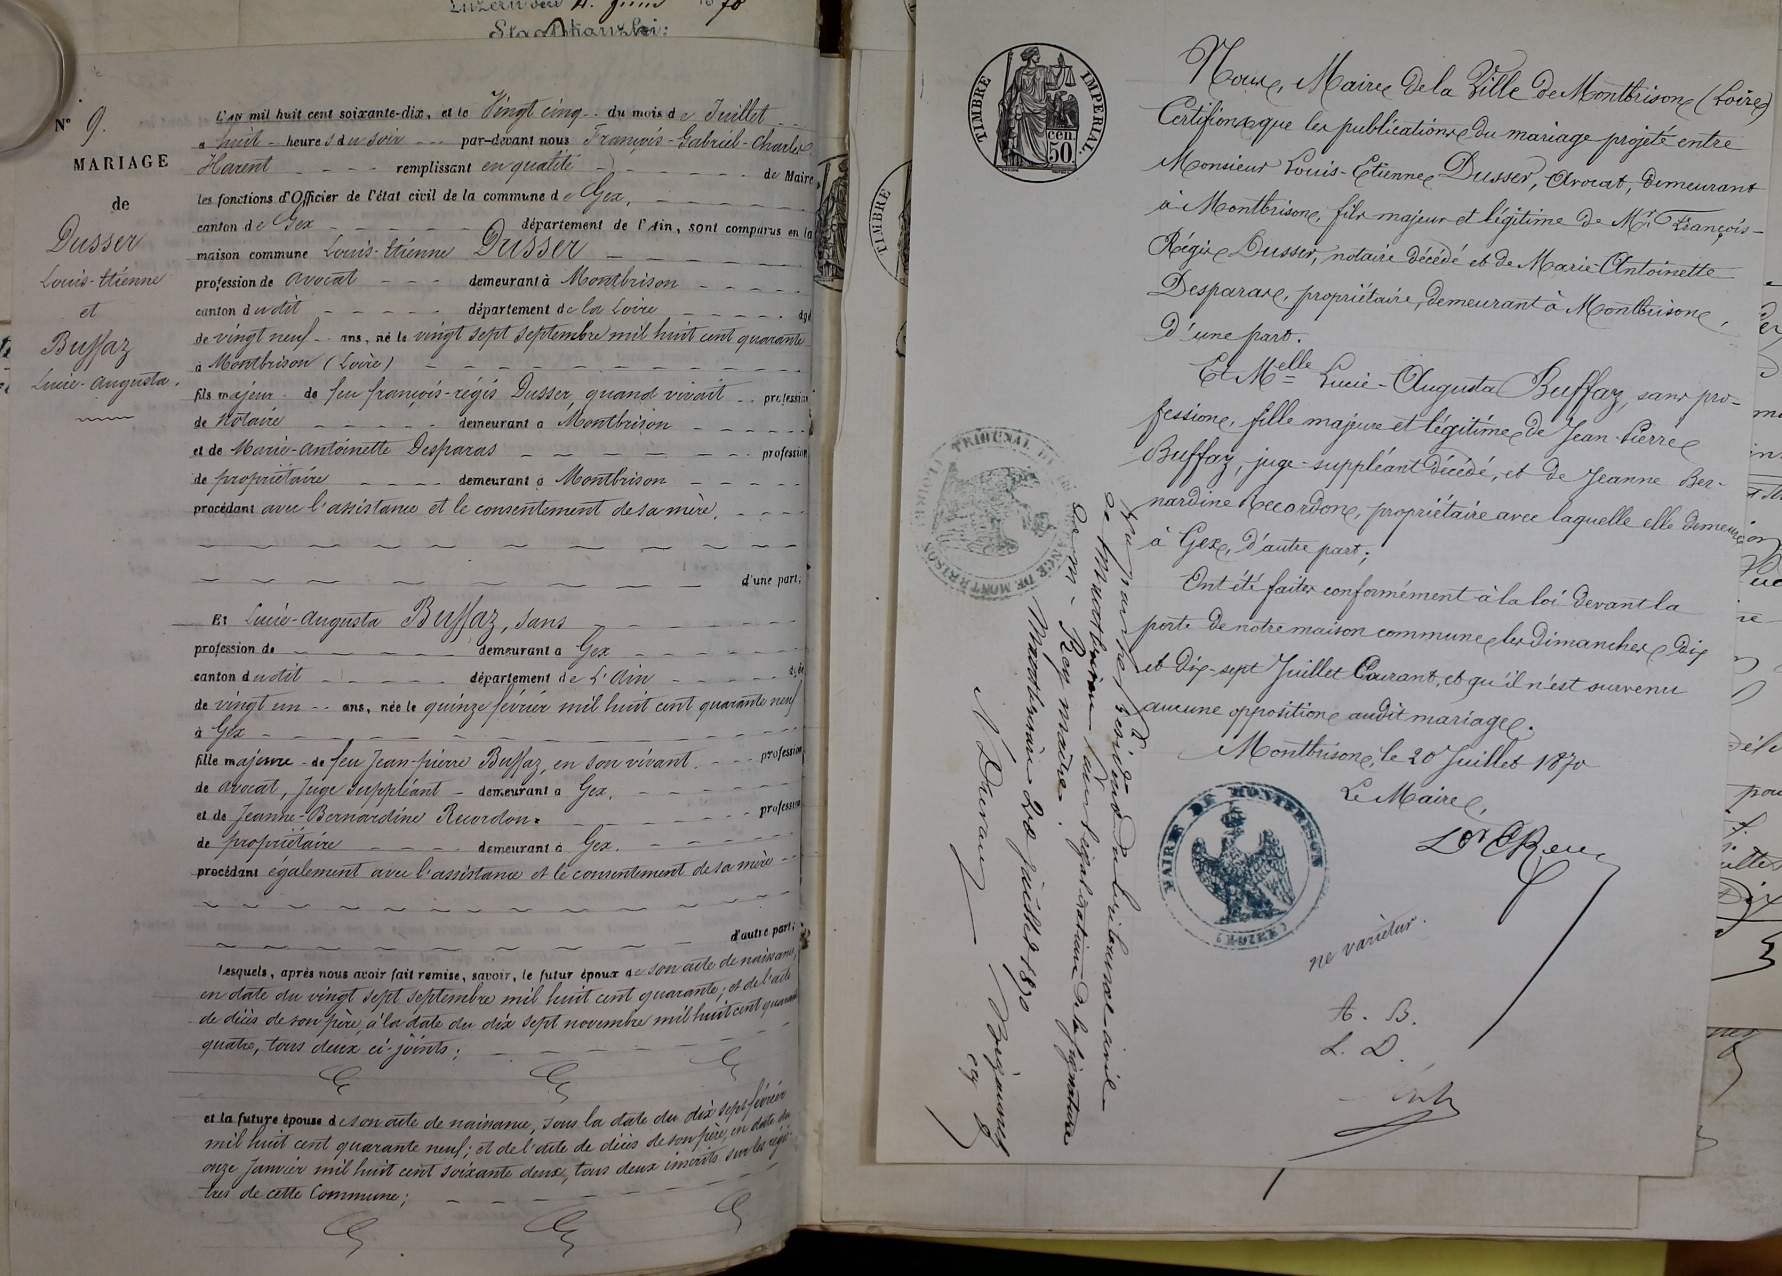 Luzern den 4. Juni 1870
Staatskanzlei:
N° 9.
MARIAGE
de
Dusser
Louis-Etienne
et
Buffaz
Lucie-Augusta.
L'AN mil huit cent soixante-dix, et le Vingt cinq du mois de Juillet
a huit heures du soir par-devant nous François-Gabriel-Charles
Harent remplissant en qualité de Maire,
les fonctions d'Officier de l'état civil de la commune de Gex,
canton de Gex département de l'Ain, sont comparus en la
maison commune Louis-Etienne Dusser
profession de avocat demeurant à Montbrison
canton dudit département de la Loire âgé
de vingt neuf ans, né le vingt sept septembre mil huit cent quarante
à Montbrison (Loire)
fils majeur de feu françois-régis Dusser, quand vivait profession
de notaire demeurant a Montbrison
et de Marie-Antoinette Desparas profession
de propriétaire demeurant à Montbrison
procédant avec l'assistance et le consentement de sa mère,
d'une part;
Et Lucie-Augusta Buffaz, sans
profession de demeurant a Gex
canton dudit département de L'Ain âgée
de vingt un ans, née le quinze février mil huit cent quarante neuf
à Gex
fille majeure de feu Jean-pierre Buffaz, en son vivant profession
de avocat, Juge Suppléant demeurant a Gex,
et de Jeanne-Bernardine Recordon profession
de propriétaire demeurant à Gex.
procédant également avec l'assistance et le consentement de sa mère
d'autre part;
Lesquels, après nous avoir fait remise, savoir, le futur époux de son acte de naissance,
en date du vingt sept septembre mil huit cent quarante; et de l'acte
de décès de son père, à la date du dix sept novembre mil huit cent quarante
quatre, tous deux ci-joints;
et la future épouse de son acte de naissance, sous la date du dix sept février
mil huit cent quarante neuf; et de l'acte de décès de son père, en date du
onze Janvier mil huit cent soixante deux, tous deux inscrits sur les regis-
tres de cette Commune;
TIMBRE IMPERIAL.
50 cen
TIMBRE
Nous, Maire de la Ville de Montbrison (Loire)
Certifions que les publications du mariage projeté entre
Monsieur Louis-Etienne Dusser, Avocat, demeurant
à Montbrison, fils majeur et légitime de Mr. François-
Régis Dusser, notaire décédé et de Marie Antoinette
Desparas, propriétaire, demeurant à Montbrison,
D'une part.
Et Melle Lucie-Augusta Buffaz, sans pro-
fession, fille majeure et légitime de Jean-Pierre
Buffaz, juge-suppléant décédé, et de Jeanne Ber-
nardine Recordon, propriétaire avec laquelle elle demeure
à Gex, d'autre part;
Ont été faites conformément à la loi devant la
porte de notre maison commune les dimanches dix
et dix-sept Juillet Courant, et qu'il n'est survenu
aucune opposition audit mariage.
Montbrison, le 20 Juillet 1870
Le Maire,
MAIRIE DE MONTBRISON
(LOIRE)
ne varietur.
A. B.
L. D.
TRIBUNAL DE 1ERE INSTANCE DE MONTBRISON
Vu par le Président du tribunal civil
de Montbrison pour légalisation de la signature
de M. Rey maire.
Montbrison 20 Juillet 1870